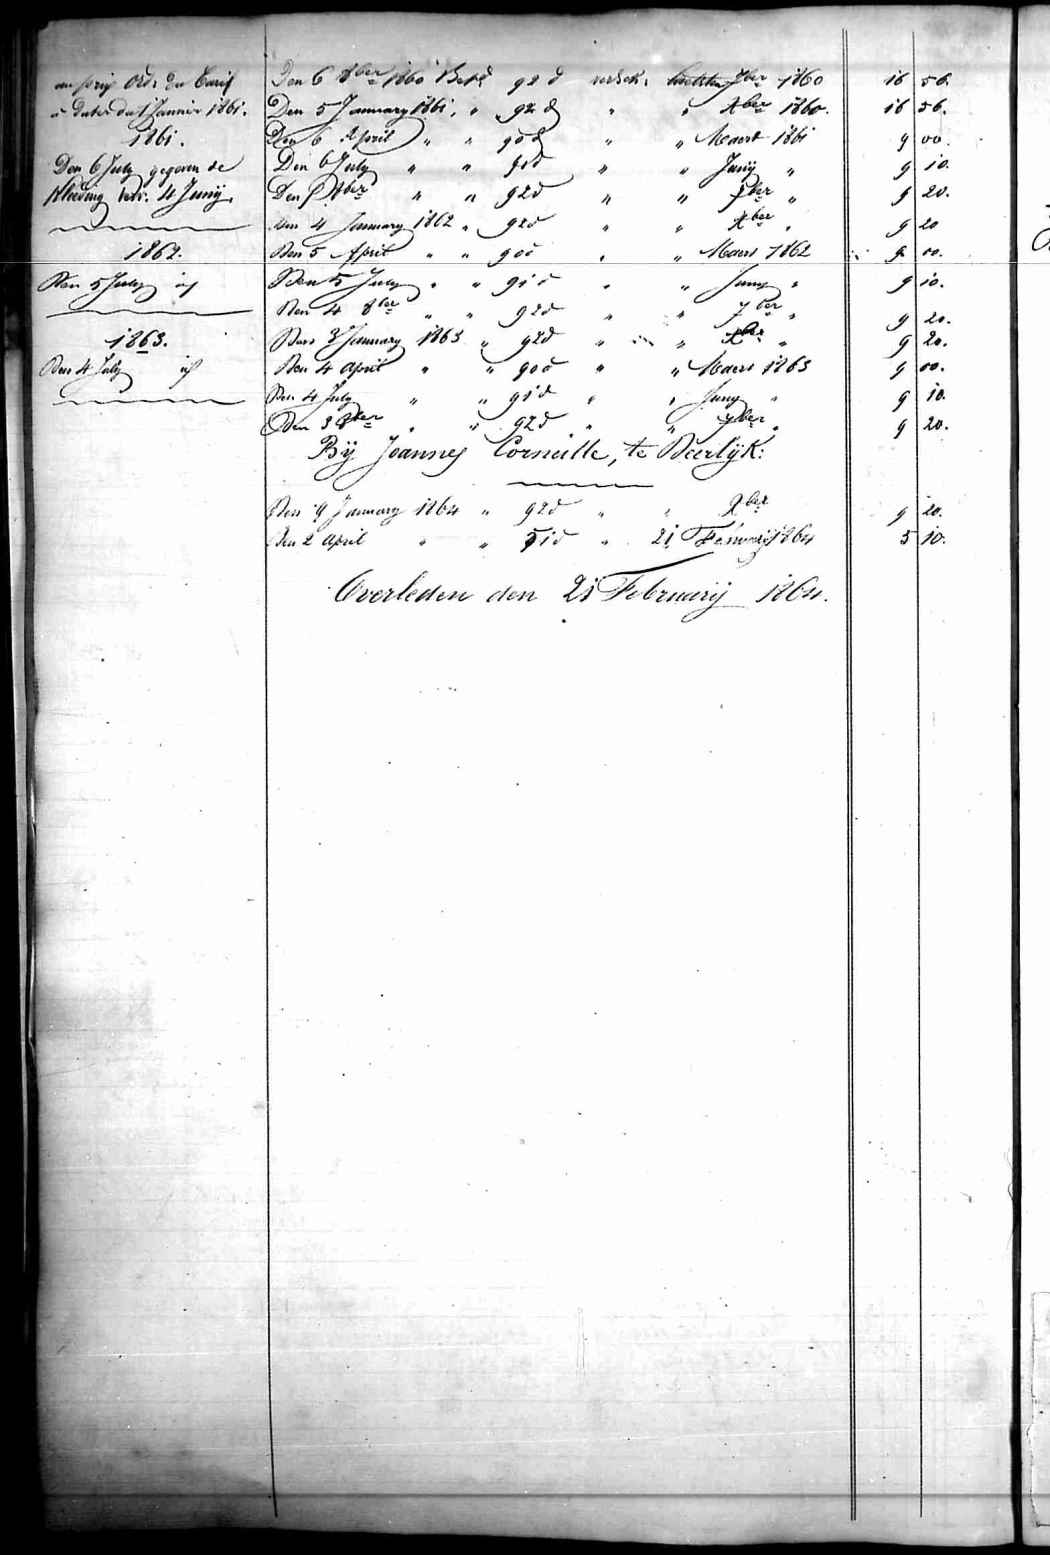 au prix Ord: du Tarif
à dater du 1 Janvier 1861.
1861.
Den 6 July gegeven de
kleeding verv. 4 Junij.
1862.
Den 5 July id
1863.
Den 4 July id
Den 6 8ber 1860 Betd 92 d versch: 7ber 1860 16 56.
Den 5 January 1861, " 92 d " " Xber 1860. 16 56.
Den 6 April " " 90 d " " Maert 1861 9 00.
Den 6 July " " 91 d " " Junij " 9 10.
Den 8ber " " 92 d " " 7ber " 9 20.
Den 4 January 1862 " 92 d " " Xber " 9 20
Den 5 April " " 90 d " " Maert 1862 9 00.
Den 5 July " " 91 d " " Juny " 9 10.
Den 4 8ber " " 92 d " " 7ber " 9 20.
Den 3 January 1863 " 92 d " " Xber " 9 20.
Den 4 April " " 90 d " " Maert 1863 9 00.
Den 4 July " " 91 d " " Juny " 9 10.
Den 3 8ber " " 92 d " " 7ber " 9 20.
Bij Joannes Corneille, te Deerlijk:
Den 9 January 1864 " 92 d " " Xber 9 20.
Den 2 April " " 51 d " 21 February 1864 5 10.
Overleden den 21 Februarij 1864.